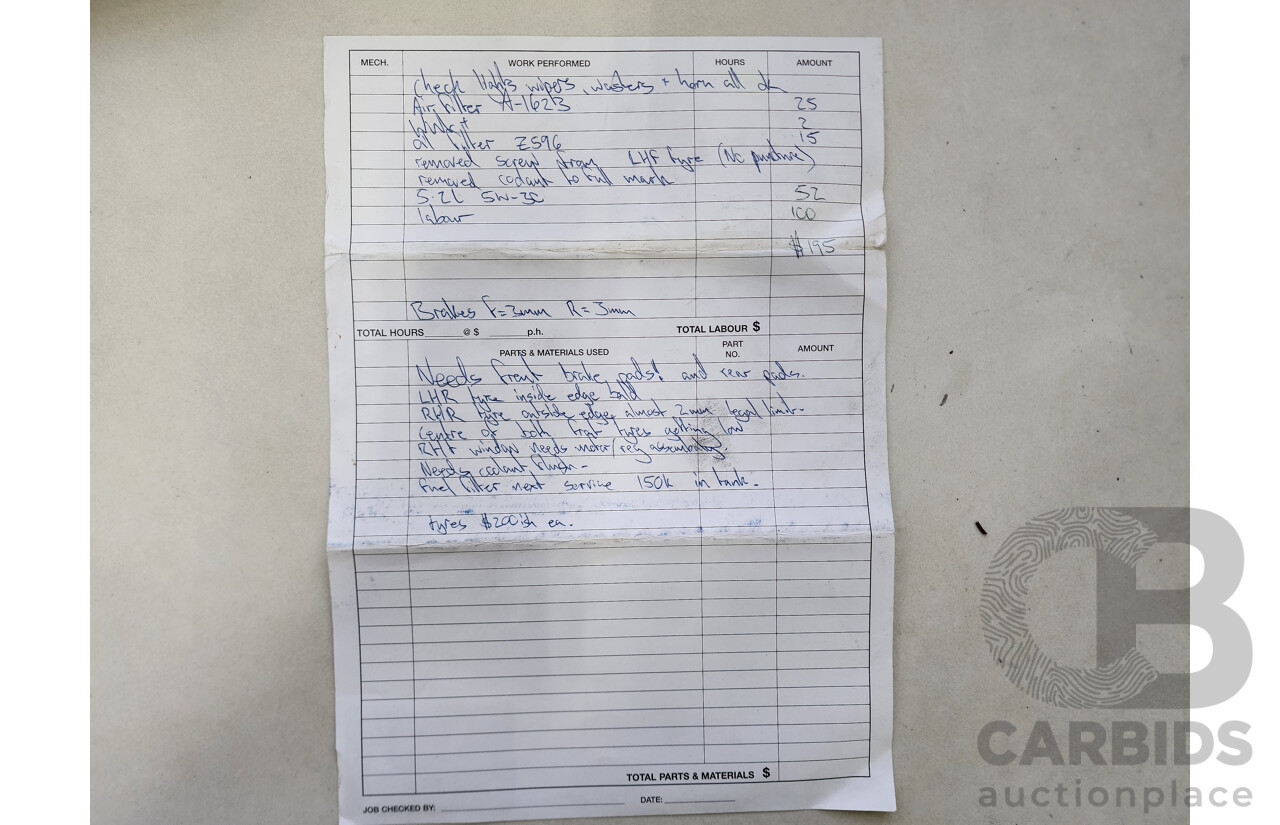 MECH. WORK PERFORMED HOURS AMOUNT
check lights wipers, washers + horn all ok
Air filter A-1623 25
2
oil filter Z596 15
removed screw from LHF tyre (No puncture)
removed coolant to full mark
5.2L 5W-30 52
labour 100
$195
Brakes F=3mm R=3mm
TOTAL HOURS @ $ p.h. TOTAL LABOUR $
PARTS & MATERIALS USED PART NO. AMOUNT
Needs front brake pads! and rear pads.
LHR tyre inside edge bald
RHR tyre outside edge almost 2mm legal limit.
Centre of both front tyres getting low
RHF window needs motor/reg assembly
Needs coolant flush -
fuel filter next service 150k in tank.
tyres $200ish ea.
TOTAL PARTS & MATERIALS $
JOB CHECKED BY: DATE:
CB
CARBIDS
auctionplace